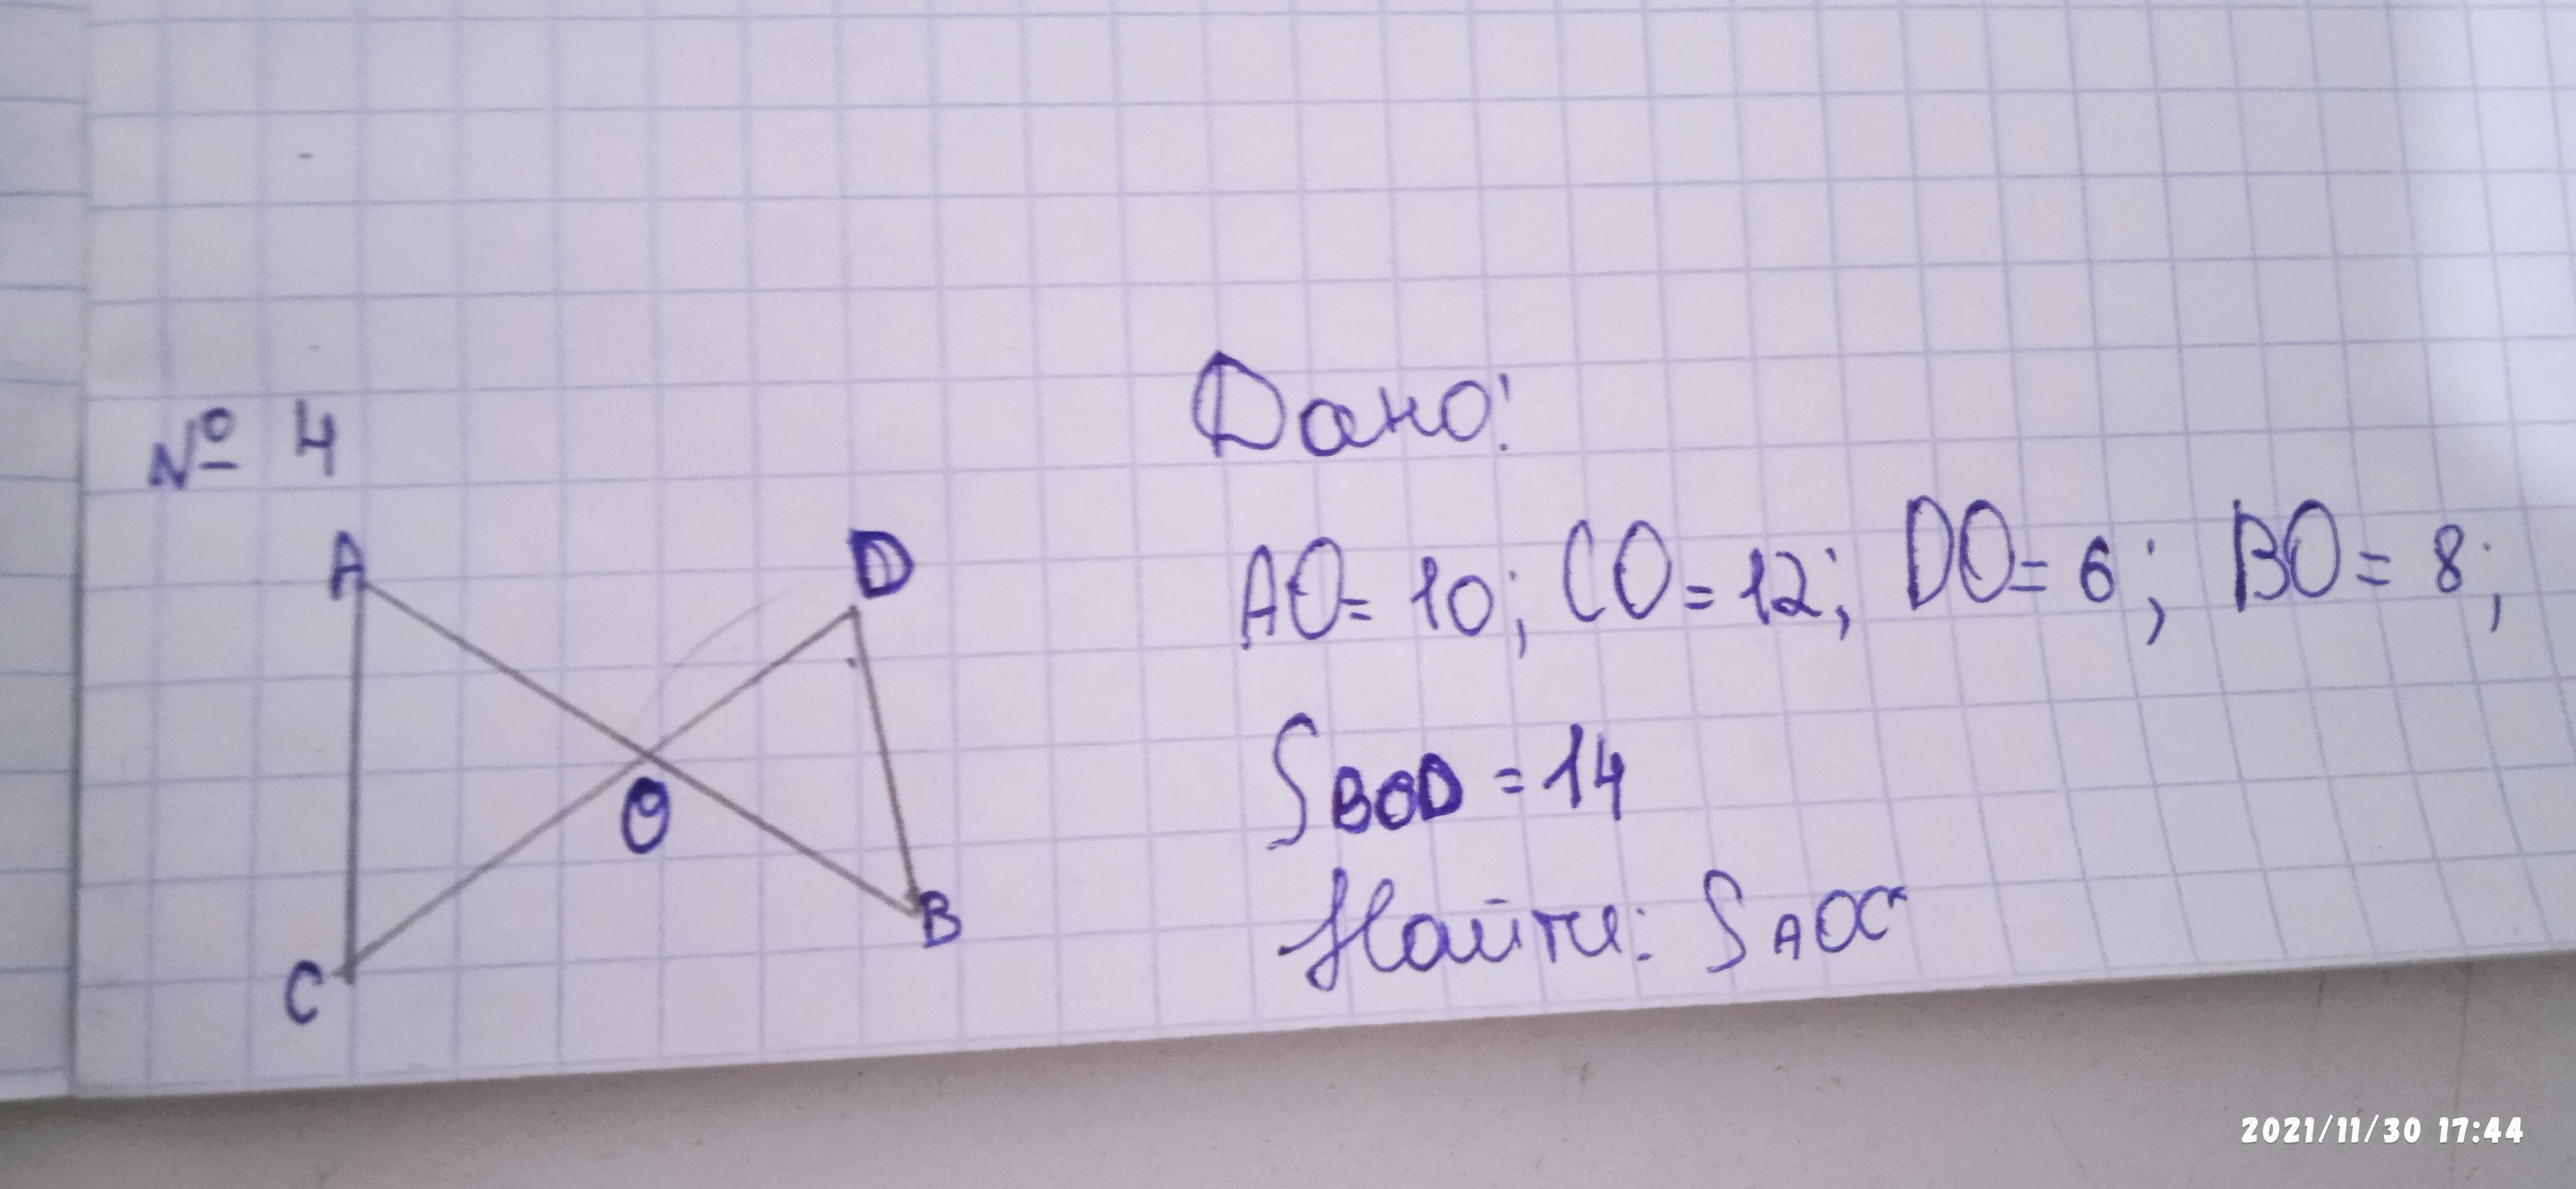 № 4
A
D
O
C
B
Дано:
AO = 10; CO = 12; DO = 6; BO = 8;
S BOD = 14
Найти: S AOC
2021/11/30 17:44